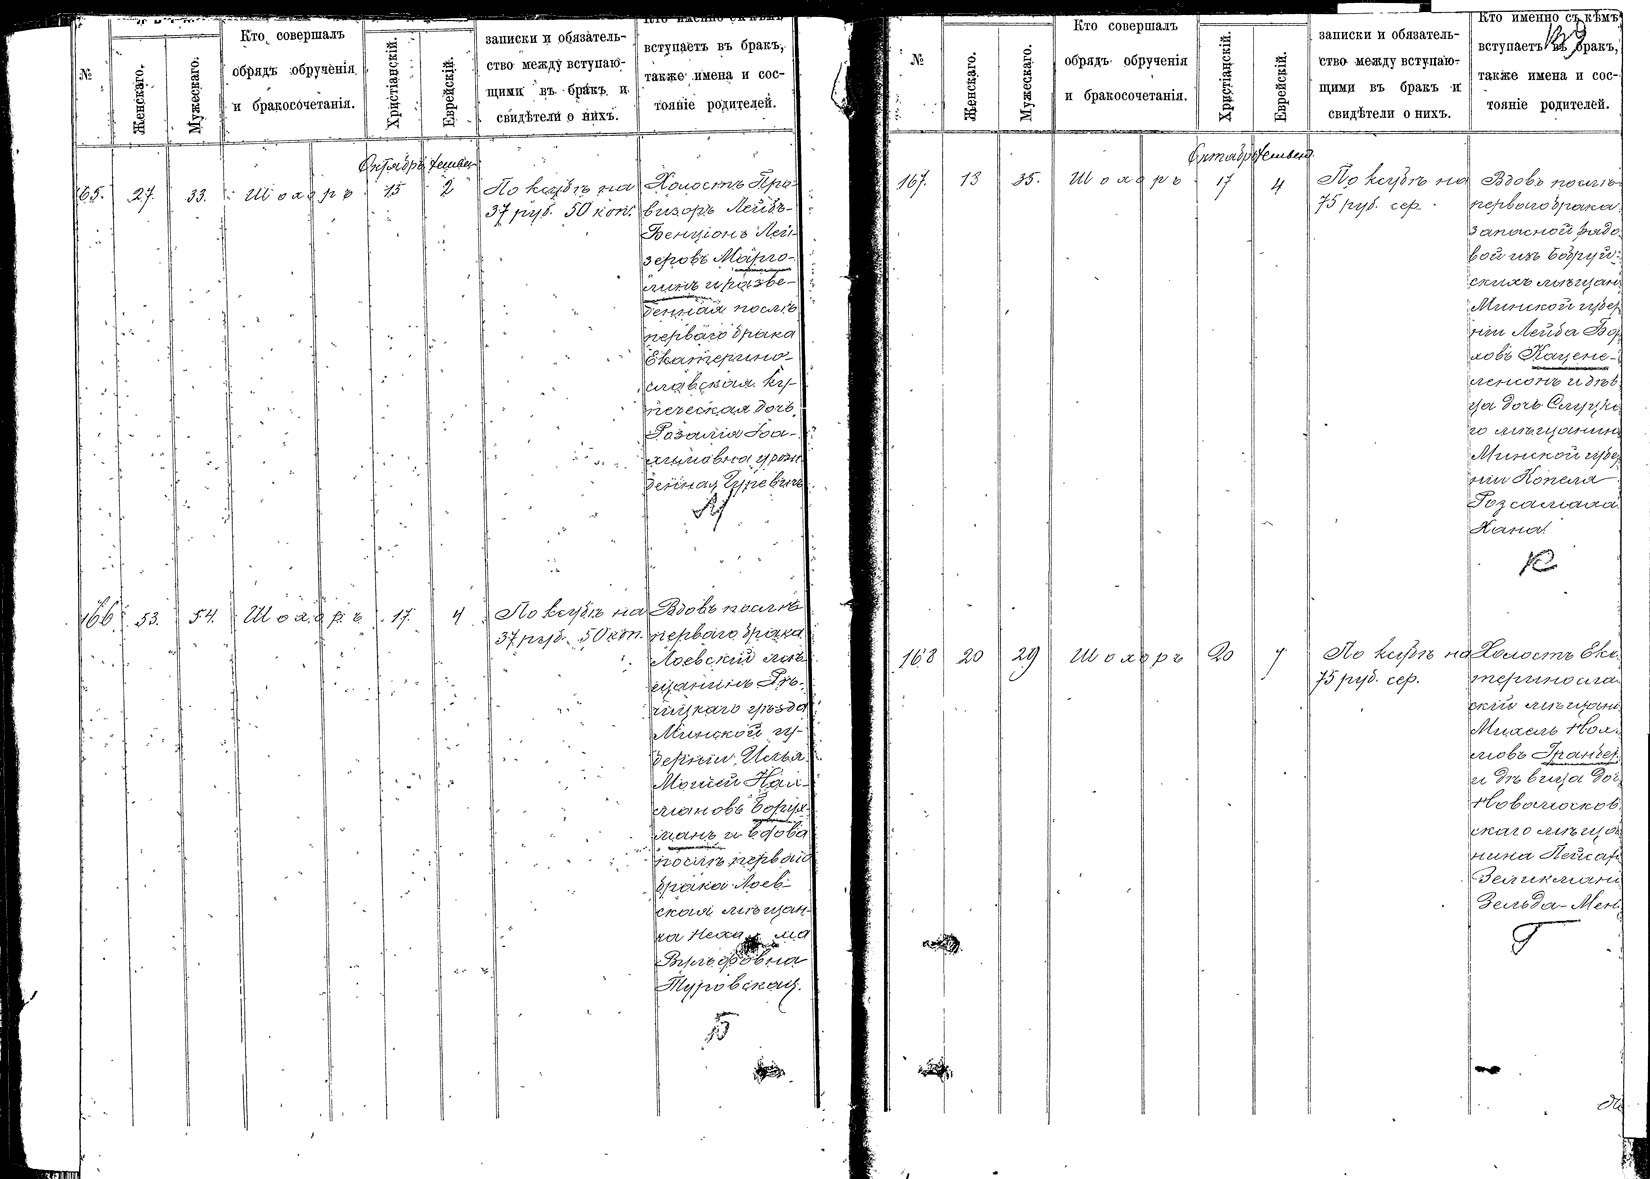 №
Женскаго.
Мужескаго.
Кто совершалъ
обрядъ обрученія
и бракосочетанія.
Христіанскій.
Еврейскій.
записки и обязатель-
ство между вступаю-
щими въ бракъ и
свидѣтели о нихъ.
Кто именно съ кѣмъ
вступаетъ въ бракъ,
также имена и сос-
тояніе родителей.
Октябрь
165. 27. 33. Шохоръ 15 2
По ксубѣ на
37 руб. 50 коп.
Холостъ Про-
визоръ Лейбъ-
Бенціонъ Лей-
зеровъ Марго-
линъ и разве-
денная послѣ
перваго брака
Екатерино-
славская ку-
печеская дочь
Розалія Іоа-
химовна урож-
денная Гуревичъ
М
166 53. 54. Шохоръ 17. 4
По ксубѣ на
37 руб. 50 коп.
Вдовъ послѣ
перваго брака
Лоевскій мѣ-
щанинъ Рѣ-
чицкаго уѣзда
Минской гу-
берніи Илья
Мовшей Нах-
мановъ Борух-
манъ и вдова
послѣ перваго
брака Лоев-
ская мѣщан-
ка Неха ма
Вульфовна
Туровская.
Б
139
№
Женскаго.
Мужескаго.
Кто совершалъ
обрядъ обрученія
и бракосочетанія.
Христіанскій.
Еврейскій.
записки и обязатель-
ство между вступаю-
щими въ бракъ и
свидѣтели о нихъ.
Кто именно съ кѣмъ
вступаетъ въ бракъ,
также имена и сос-
тояніе родителей.
Октабрь
167. 18 35. Шохоръ 17 4
По ксубѣ на
75 руб. сер.
Вдовъ послѣ
перваго брака
запасной рядо
вой изъ Бобруй-
скихъ мѣщанъ
Минской губер
ніи Лейба Бор
ховъ Кацене-
ленсонъ и дѣв
ца дочь Слуцка
го мѣщанина
Минской губер
ніи Копеля
Розсамаха
Хана.
К
168 20 29 Шохоръ 20 7
По ксубѣ на
75 руб. сер.
Холостъ Ека
теринослав
скій мѣщани
Михель Ноя
мовъ
и дѣвица доч
Новомосков
скаго мѣща
нина Пейсах
Зеликмани
Зельда-Мен
Г